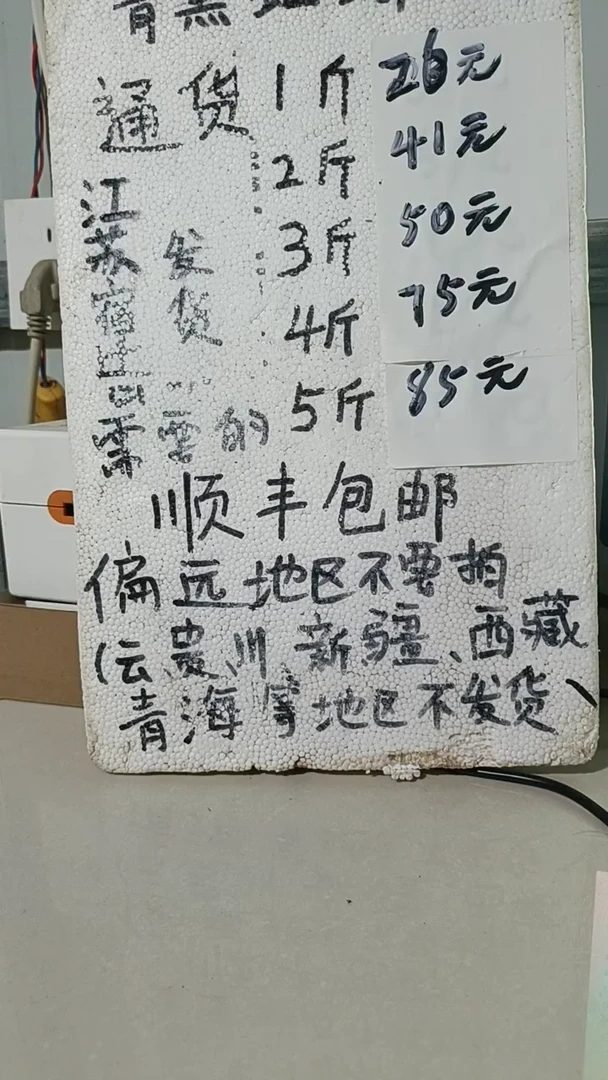 通货 1斤 26元
2斤 41元
江苏 发货 3斤 50元
4斤 75元
需要的 5斤 85元
顺丰包邮
偏远地区不要拍
(云、贵、川、新疆、西藏、
青海等地区不发货